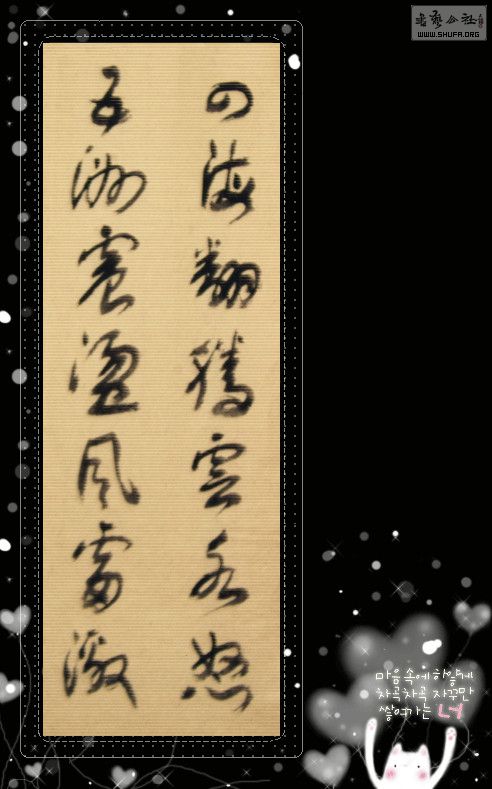 四海翻騰雲水怒
五洲震盪風雷激
마음속에 하얗게
차곡차곡 자꾸만
쌓여가는 너
WWW.SHUFA.ORG